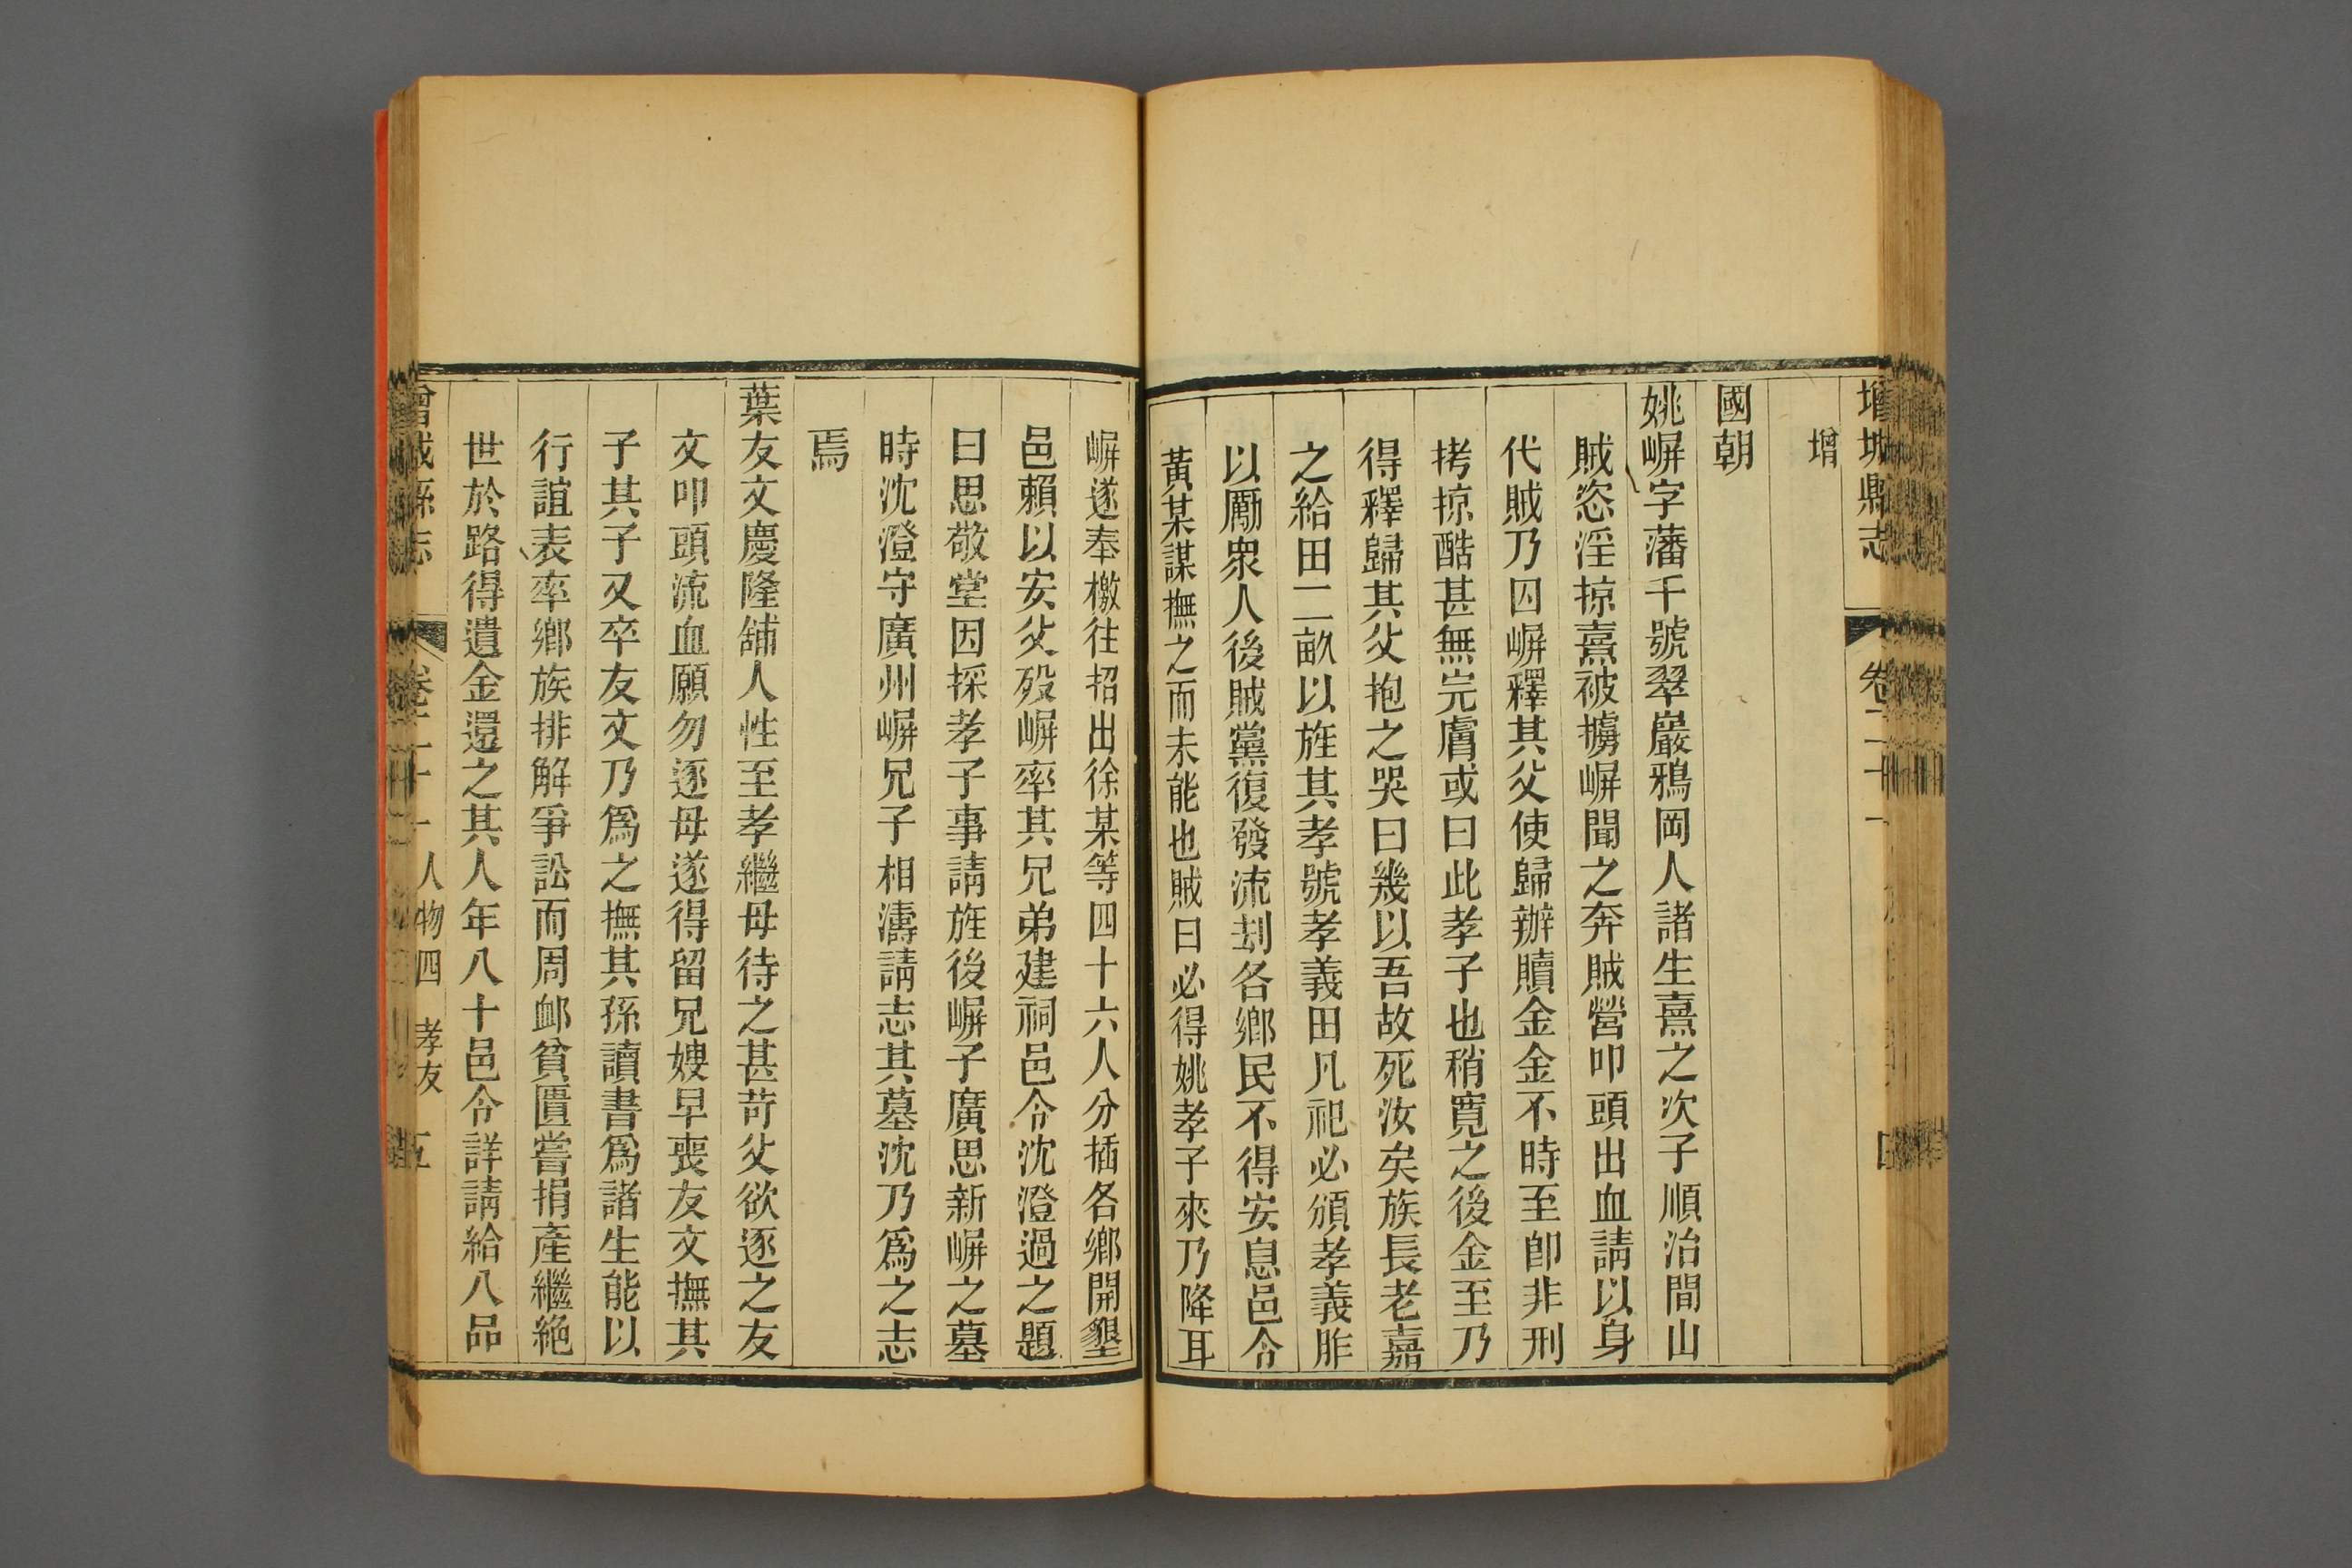 增城縣志 卷二十一
增
國朝
姚嶰字藩千號翠巖鴉岡人諸生熹之次子順治間山
賊恣淫掠熹被擄嶰聞之奔賊營叩頭出血請以身
代賊乃囚嶰釋其父使歸辦贖金金不時至卽非刑
拷掠酷甚無完膚或曰此孝子也稍寛之後金至乃
得釋歸其父抱之哭曰幾以吾故死汝矣族長老嘉
之給田二畝以旌其孝號孝義田凡祀必頒孝義胙
以勵衆人後賊黨復發流刦各鄉民不得安息邑令
黃某謀撫之而未能也賊曰必得姚孝子來乃降耳
遂奉檄往招出徐某等四十六人分插各鄉開墾
邑賴以安父歿率其兄弟建祠邑令沈澄過之題
曰思敬堂因採孝子事請旌後子廣思新之墓
時沈澄守廣州兄子相濤請志其墓沈乃爲之志
焉
葉友文慶隆舖人性至孝繼母待之甚苛父欲逐之友
文叩頭流血願勿逐母遂得留兄嫂早喪友文撫其
子其子又卒友文乃爲之撫其孫讀書爲諸生能以
行誼表率鄉族排解爭訟而周卹貧匱嘗捐產繼絕
世於路得遺金還之其人年八十邑令詳請給八品
增城縣志 卷二十一 人物四 孝友 五